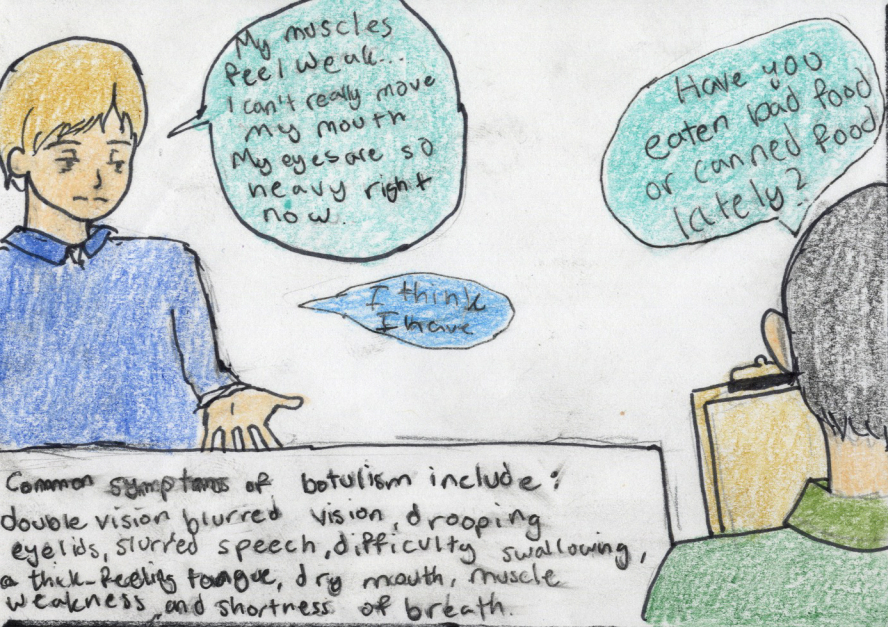 My muscles
feel weak...
I can't really move
my mouth
My eyes are so
heavy right
now.
Have you
eaten bad food
or canned food
lately?
I think
I have
Common symptoms of botulism include:
double vision blurred vision, drooping
eyelids, slurred speech, difficulty swallowing,
a thick-feeling tongue, dry mouth, muscle
weakness, and shortness of breath.